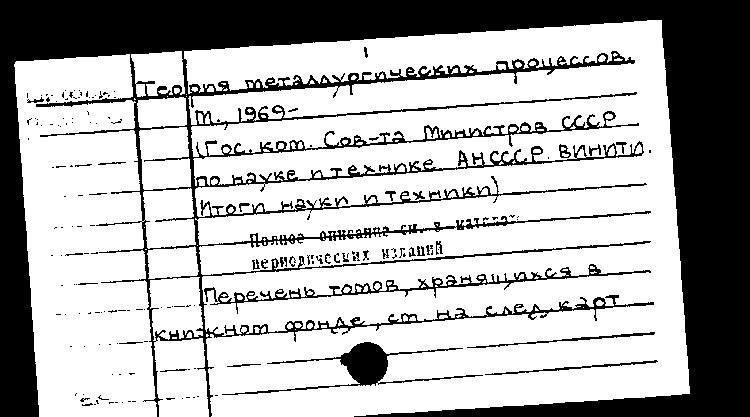 Теория металлургических процессов.
М., 1969-
(Гос. ком. Сов-та Министров СССР
по науке и технике АН СССР. ВИНИТИ.
Итоги науки и техники)
Полное описание см. в каталоге
периодических изданий
Перечень томов, хранящихся в
книжном фонде, см. на след. карт